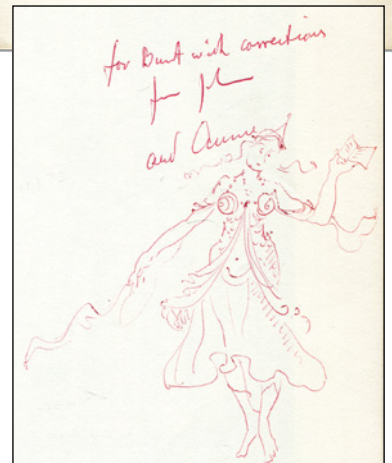 for Bunt with corrections
from John
and Anne